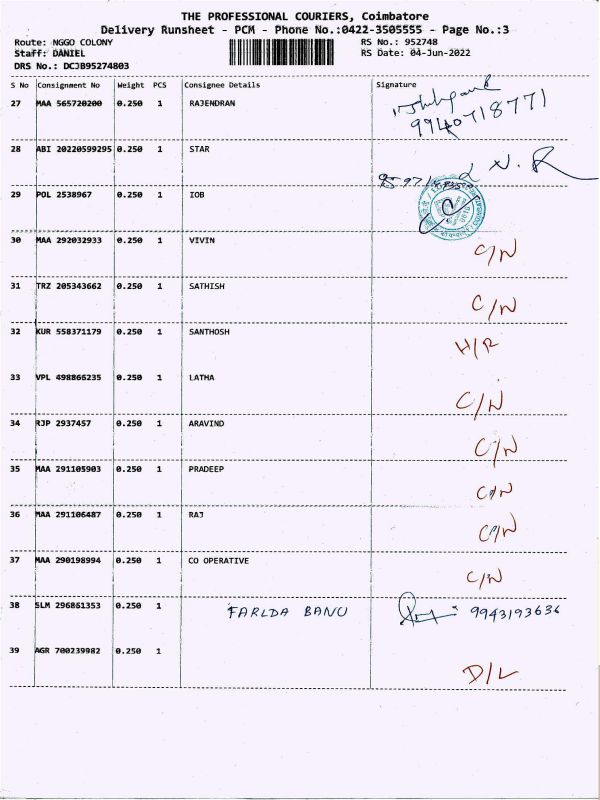 THE PROFESSIONAL COURIERS, Coimbatore
Delivery Runsheet - PCM - Phone No.:0422-3505555 - Page No.:3
Route: NGGO COLONY RS No.: 952748
Staff: DANIEL RS Date: 04-Jun-2022
DRS No.: DCJB95274803
S No Consignment No Weight PCS Consignee Details Signature
27 MAA 565720200 0.250 1 RAJENDRAN
9940718771
28 ABI 20220599295 0.250 1 STAR
29 POL 2538967 0.250 1 IOB
30 MAA 292032933 0.250 1 VIVIN C/N
31 TRZ 205343662 0.250 1 SATHISH C/N
32 KUR 558371179 0.250 1 SANTHOSH H/R
33 VPL 498866235 0.250 1 LATHA C/N
34 RJP 2937457 0.250 1 ARAVIND C/N
35 MAA 291105903 0.250 1 PRADEEP C/N
36 MAA 291106487 0.250 1 RAJ C/N
37 MAA 290198994 0.250 1 CO OPERATIVE C/N
38 SLM 296861353 0.250 1 FARIDA BANU 9943193636
39 AGR 700239982 0.250 1 D/L